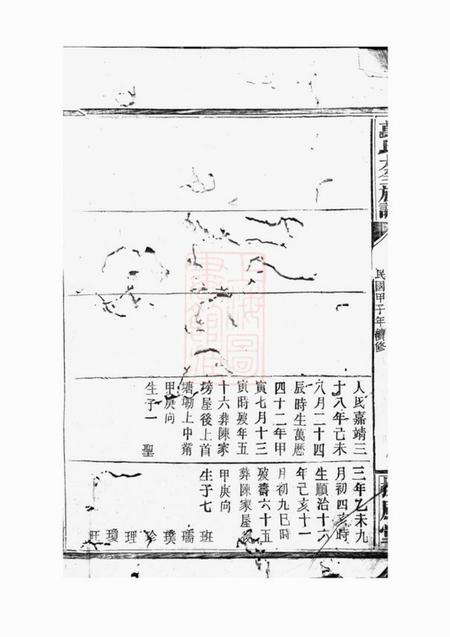 氏大全族譜
民國甲子年續修
人氏嘉靖三
十八年己未
八月二十四
辰時生萬歷
四十二年甲
寅七月十三
寅時歿年五
十六葬陳家
塝屋後上首
塘塝上中首
甲庚向
生子一
聖
三年乙未九
月初四亥時
生順治十六
年己亥十一
月初九巳時
歿壽六十五
葬陳家屋
甲庚向
生子七
班
瑞
璞
珍
理
瓊
旺
堂